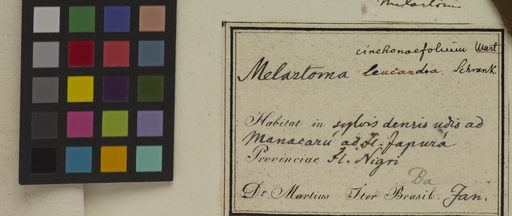 Melastom.
cinchonaefolium Mart
Melastoma leucandra. Schrank
Habitat in sylvis densis udis ad
Manacarú ad Fl. Japurá
Provinciae Fl. Nigri
Ba
Dr Martius Iter Brasil. Jan.